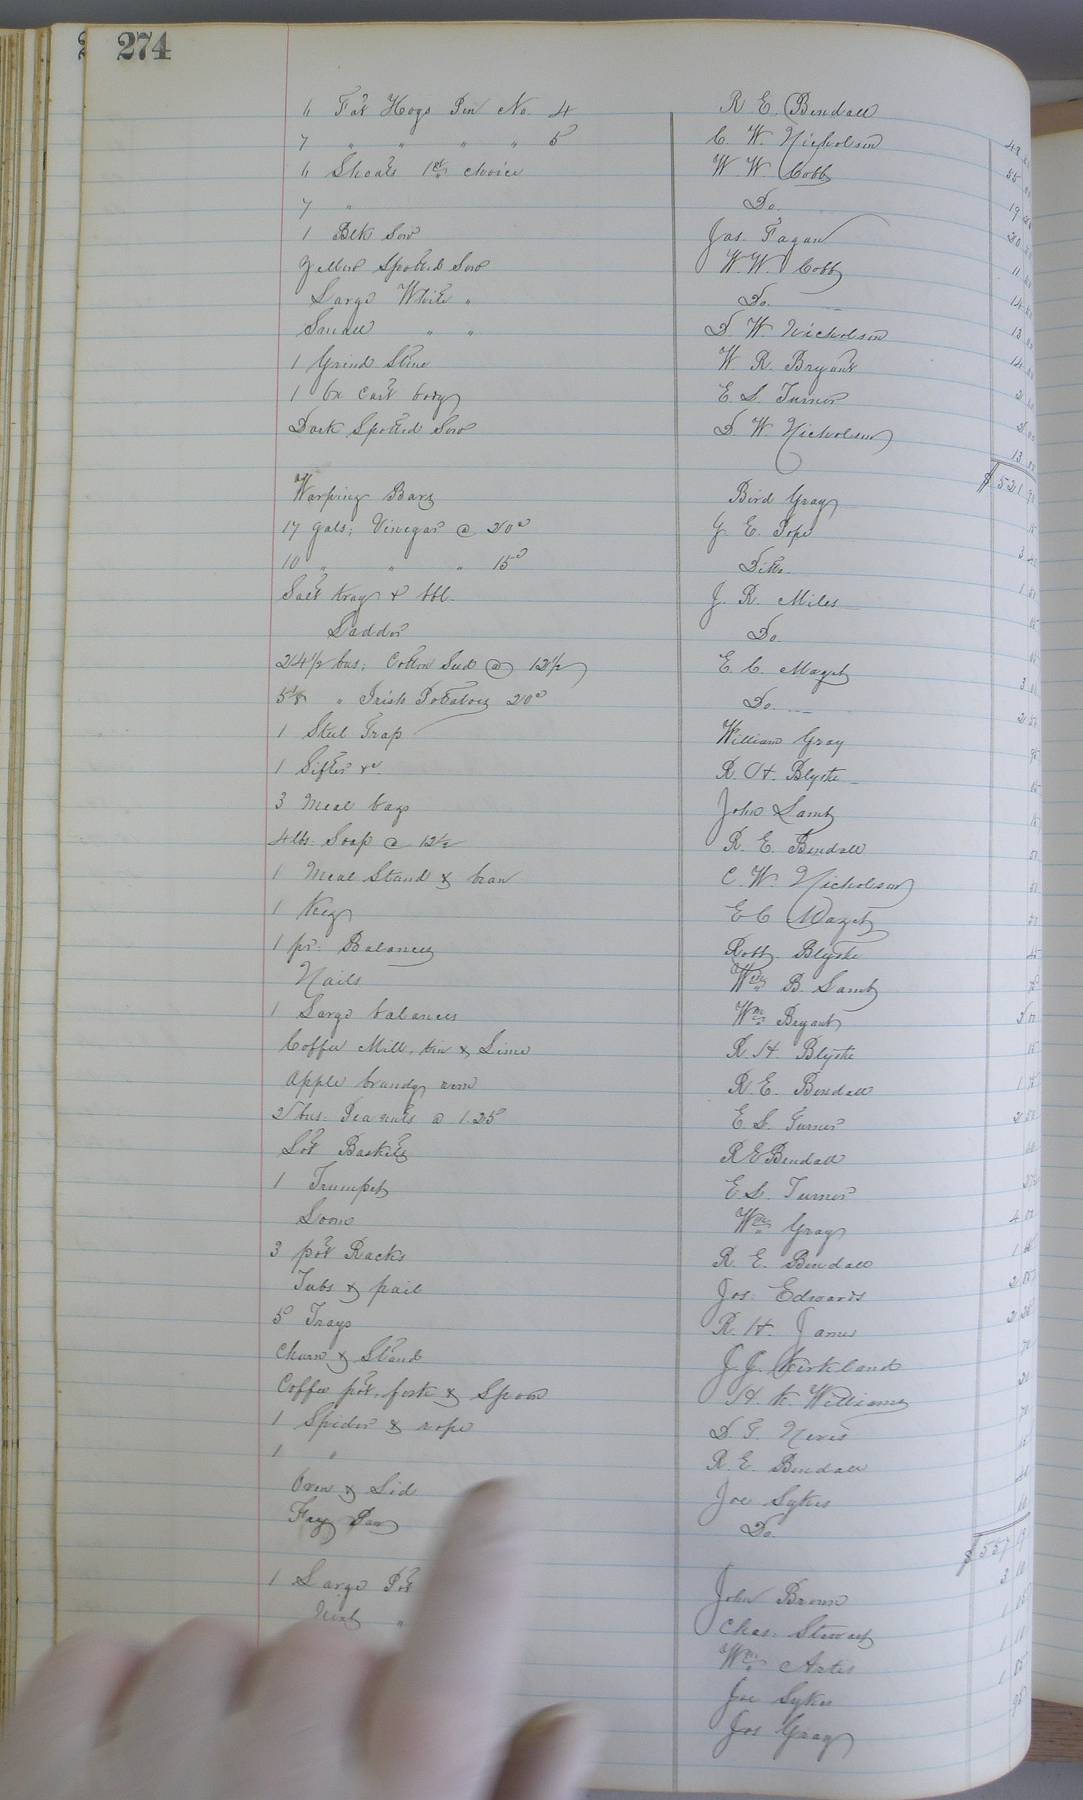 274
6 Fat Hogs Pen No. 4 R. E. Bendall
7 " " " " 5 C. W. Nicholson 42 00
6 Shoats 1st choice W. W. Cobb 55 00
7 " Do. 19
1 Blk Sow Jas. Fagan 20
Yellow Spotted Sow W. W. Cobb 11
Large White " Do. 14
Small " " D. W. Nicholson 13
1 Grind Stone W. R. Bryant 14
1 Ox Cart body E. S. Turner 2
Dark Spotted Sow D. W. Nicholson
13
$521
Warping Bars Bird Gray
17 gals; Vinegar @ 20c G. E. Pope
10 " " " 15c Ditto 3 40
Salt Kray & bbl. J. R. Miles 1 50
Ladder Do.
24½ bus; Cotton Seed @ 12½ E. C. Mazet
" Irish Potatoes 20c Do. 3
1 Steel Trap William Gray
1 Sifter &c. R. H. Blythe
3 Meal bags John Lamb
4 lbs. Soap @ 12½ R. E. Bendall
1 Meal Stand & bran C. W. Nicholson
1 Keg E C Mazet
1 pr. Balances Robt. Blythe
Nails Wm B. Lamb
1 Large balances Wm Bryant
Coffee Mill, tin & Lime R H. Blythe
Apple brandy R. E. Bendall 1
2 bus. Pea nuts @ 1.25 E. S. Turner 2 50
Lot Baskets R E Bendall
1 Trumpet E S. Turner
Loom Wm Gray
3 pot Racks R. E. Bendall 4
Tubs & pail Jos. Edwards 1
5 Trays R. H. James 2
Churn & Stand J. J. Kirkland 2
Coffee pot, fork & Spoon H. K. Williams
1 Spider & rope D. G. Nevis
1 " R. E. Bendall
Oven & Lid Joe Sykes
Fry Pan Do.
$557 19
1 Large Pot John Brown 3
Next " Chas. Stewart 1
Wm Artis 1
Joe Sykes 1
Jos Gray